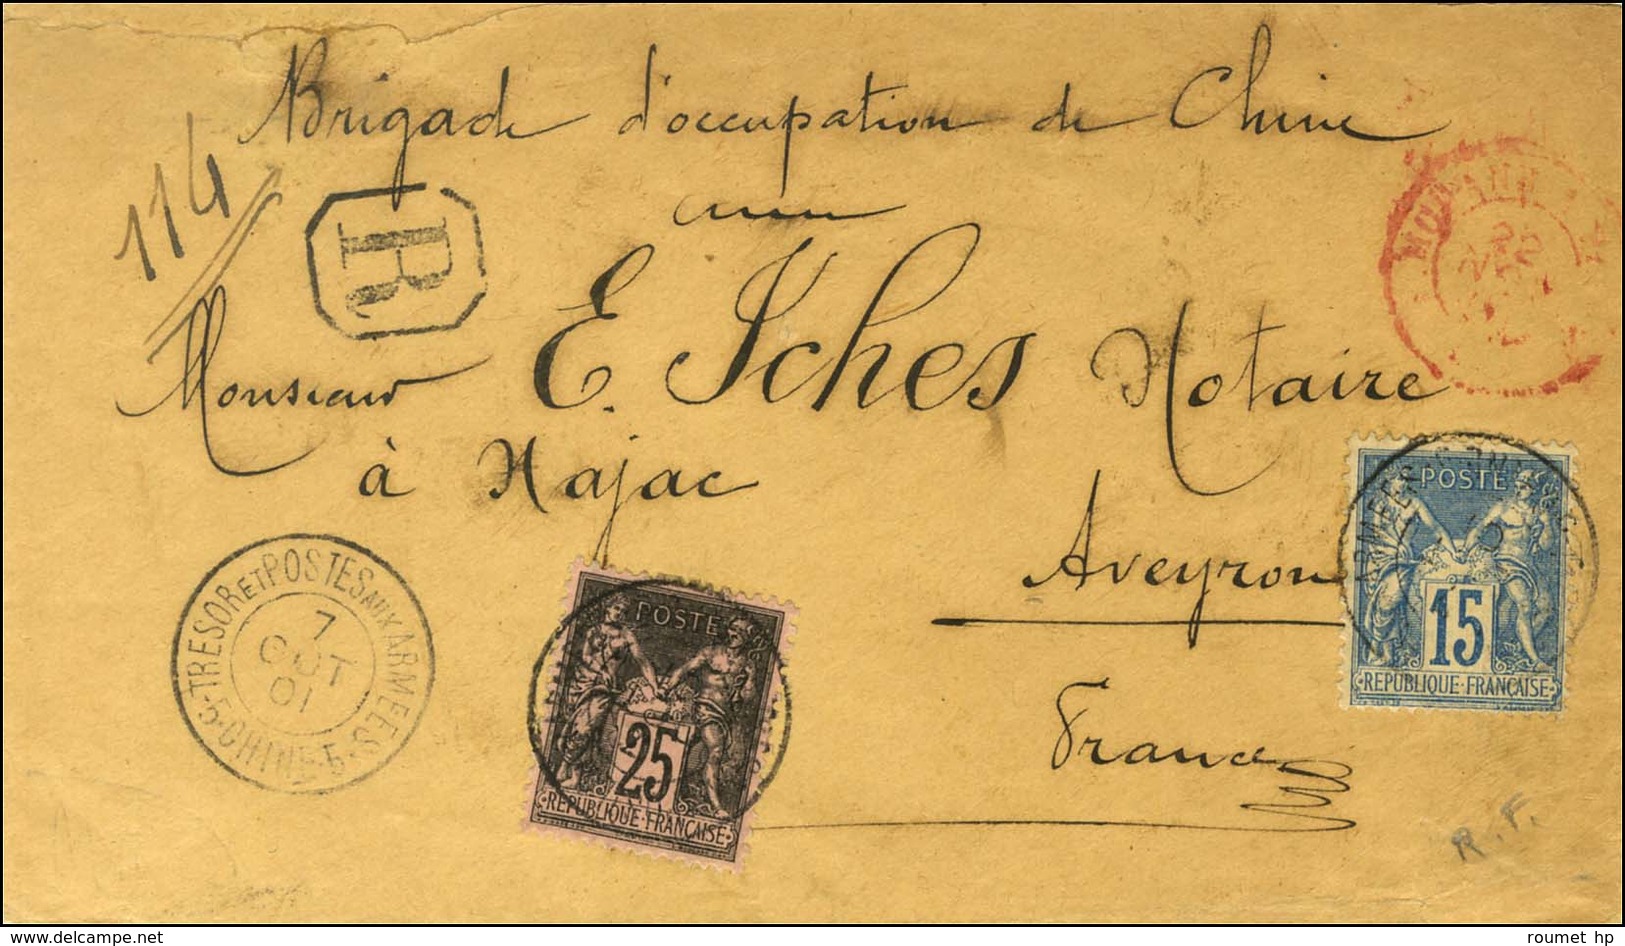 Brigade d'occupation de Chine
114
R
Monsieur E. Iches Notaire
à Najac
Aveyron
France
TRESOR ET POSTES AUX ARMEES
7
OCT
01
5·CHINE·5
POSTE
25
REPUBLIQUE·FRANÇAISE
POSTE
15
REPUBLIQUE·FRANÇAISE
R.F.
delcampe.net
roumet hp